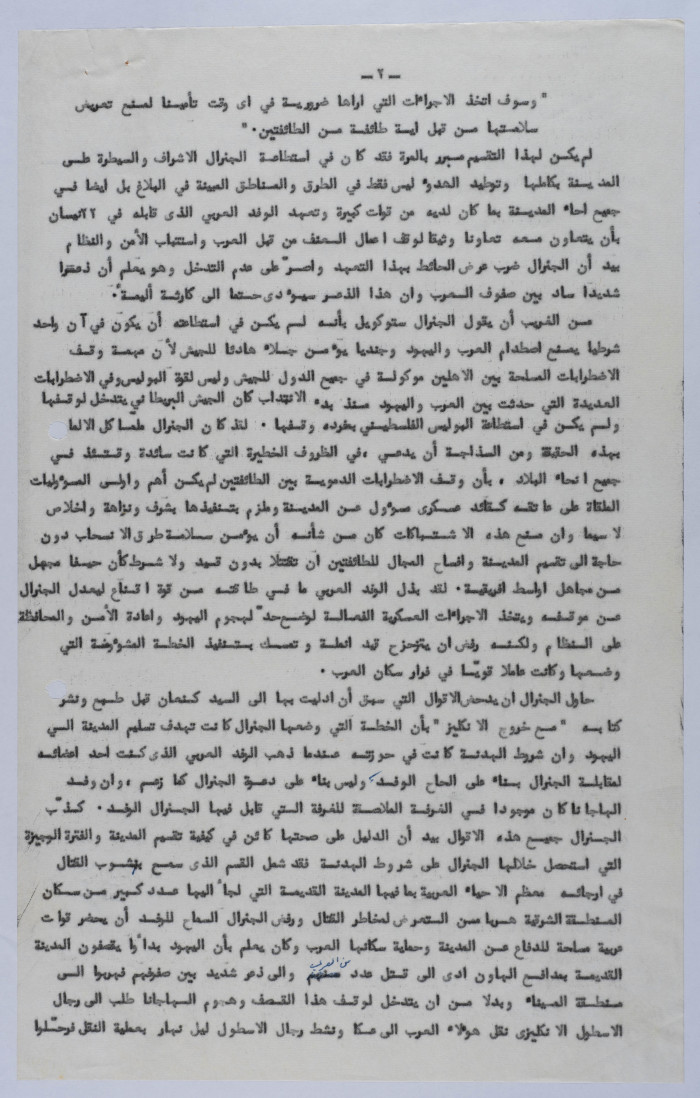 — ٢ —
" وسوف اتخذ الاجراءات التي اراها ضرورية في اى وقت تأمينا لمنع تعريض
سلامتها من قبل اية طائفة من الطائفتين. "
لم يكن لهذا التقسيم مبرر بالمرة فقد كان في استطاعة الجنرال الاشراف والسيطرة على
المدينة بكاملها وتوطيد الهدوء ليس فقط في الطرق والمناطق المبينة في البلاغ بل ايضا في
جميع احياء المدينة بما كان لديه من قوات كبيرة وتعهد الوفد العربي الذى قابله في ٢٢نيسان
بأن يتعاون معه تعاونا وثيقا لوقف اعمال العنف من قبل العرب واستتباب الأمن والنظام
بيد أن الجنرال ضرب عرض الحائط بهذا التعهد واصرّ على عدم التدخل وهو يعلم أن ذعرا
شديدا ساد بين صفوف العرب وان هذا الذعر سيؤدى حتما الى كارثة أليمة.
من الغريب أن يقول الجنرال ستوكويل بأنه لم يكن في استطاعته أن يكون في آن واحد
شرطيا يمنع اصطدام العرب واليهود وجنديا يؤمن جلاء هادئا للجيش لأن مهمة وقف
الاضطرابات المسلحة بين الاهلين موكولة في جميع الدول للجيش وليس لقوة البوليس وفي الاضطرابات
العديدة التي حدثت بين العرب واليهود منذ بدء الانتداب كان الجيش البريطاني يتدخل لوقفها
ولم يكن في استطاعة البوليس الفلسطيني بمفرده وقفها . لقد كان الجنرال ملما كل الالما
بهذه الحقيقة ومن السذاجة أن يدعي ، في الظروف الخطيرة التي كانت سائدة وقتئذ في
جميع انحاء البلاد ، بأن وقف الاضطرابات الدموية بين الطائفتين لم يكن أهم واولى المسؤوليات
الملقاة على عاتقه كقائد عسكرى مسؤول عن المدينة وملزم بتنفيذها بشرف ونزاهة واخلاص
لا سيما وان منع هذه الاشتباكات كان من شأنه أن يؤمن سلامة طرق الانسحاب دون
حاجة الى تقسيم المدينة وافساح المجال للطائفتين ان تقتتلا بدون قيد ولا شرط كأن حيفا مجهل
من مجاهل اواسط افريقية. لقد بذل الوفد العربي ما في طاقته من قوة اقناع ليعدل الجنرال
عن موقفه ويتخذ الاجراءات العسكرية الفعالة لوضع حدّ لهجوم اليهود واعادة الأمن والمحافظة
على النظام ولكنه رفض ان يتزحزح قيد انملة وتمسك بتنفيذ الخطة المشؤومة التي
وضعها وكانت عاملا قويّا في فرار سكان العرب .
حاول الجنرال ان يدحض الاقوال التي سبق أن ادليت بها الى السيد كنعان قبل طبع ونشر
كتابه " مع خروج الانكليز " بأن الخطة التي وضعها الجنرال كانت تهدف تسليم المدينة الى
اليهود وان شروط الهدنة كانت في حوزته عندما ذهب الوفد العربي الذى كنت احد اعضائه
لمقابلة الجنرال بناء على الحاح الوفد وليس بناء على دعوة الجنرال كما زعم ، وان وفد
الهاجانا كان موجودا في الغرفة الملاصقة للغرفة التي قابل فيها الجنرال الوفد. كذّب
الجنرال جميع هذه الاقوال بيد أن الدليل على صحتها كائن في كيفية تقسيم المدينة والفترة الوجيزة
التي استحصل خلالها الجنرال على شروط الهدنة فقد شمل القسم الذى سمح بنشوب القتال
في ارجائه معظم الاحياء العربية بما فيها المدينة القديمة التي لجأ اليها عدد كبير من سكان
المنطقة الشرقية هربا من التعرض لمخاطر القتال ورفض الجنرال السماح للوفد أن يحضر قوات
عربية مسلحة للدفاع عن المدينة وحماية سكانها العرب وكان يعلم بأن اليهود بدأوا يقصفون المدينة
القديمة بمدافع الهاون ادى الى قتل عدد من العرب والى ذعر شديد بين صفوفهم فهربوا الى
منطقة الميناء وبدلا من ان يتدخل لوقف هذا القصف وهجوم الهاجانا طلب الى رجال
الاسطول الانكليزى نقل هؤلاء العرب الى عكا ونشط رجال الاسطول ليل نهار بعملية النقل فرحّلوا